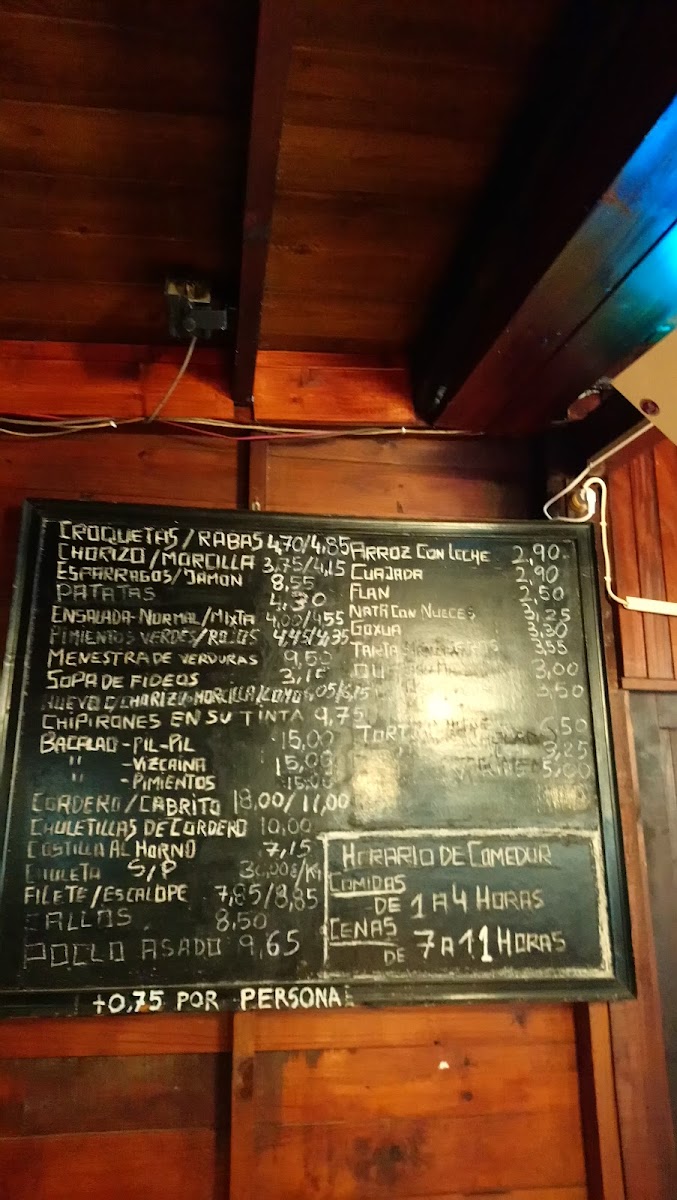 CROQUETAS/RABAS 4,70/4,85
CHORIZO/MORCILLA 3,75/4,15
ESPARRAGOS/JAMON 8,55
PATATAS 4,30
ENSALADA-NORMAL/MIXTA 4,00/4,55
PIMIENTOS VERDES/ROJOS 4,45/4,35
MENESTRA DE VERDURAS 9,50
SOPA DE FIDEOS 3,15
HUEVO C/CHORIZO-MORCILLA/LOMO
CHIPIRONES EN SU TINTA 9,75
BACALAO-PIL-PIL 15,00
" -VIZCAINA 15,00
" -PIMIENTOS 15,00
CORDERO/CABRITO 18,00/
CHULETILLAS DE CORDERO 10,00
COSTILLA AL HORNO 7,15
CHULETA S/P
FILETE/ESCALOPE 7,85/8,85
CALLOS 8,50
POLLO ASADO 9,65
ARROZ CON LECHE 2,90
CUAJADA 2,90
FLAN 2,50
NATA CON NUECES 3,25
GOXUA 3,30
TARTA 3,55
3,00
3,50
6,50
3,25
5,00
HORARIO DE COMEDOR
COMIDAS
DE 1 A 4 HORAS
CENAS
DE 7 A 11 HORAS
+0,75 POR PERSONA